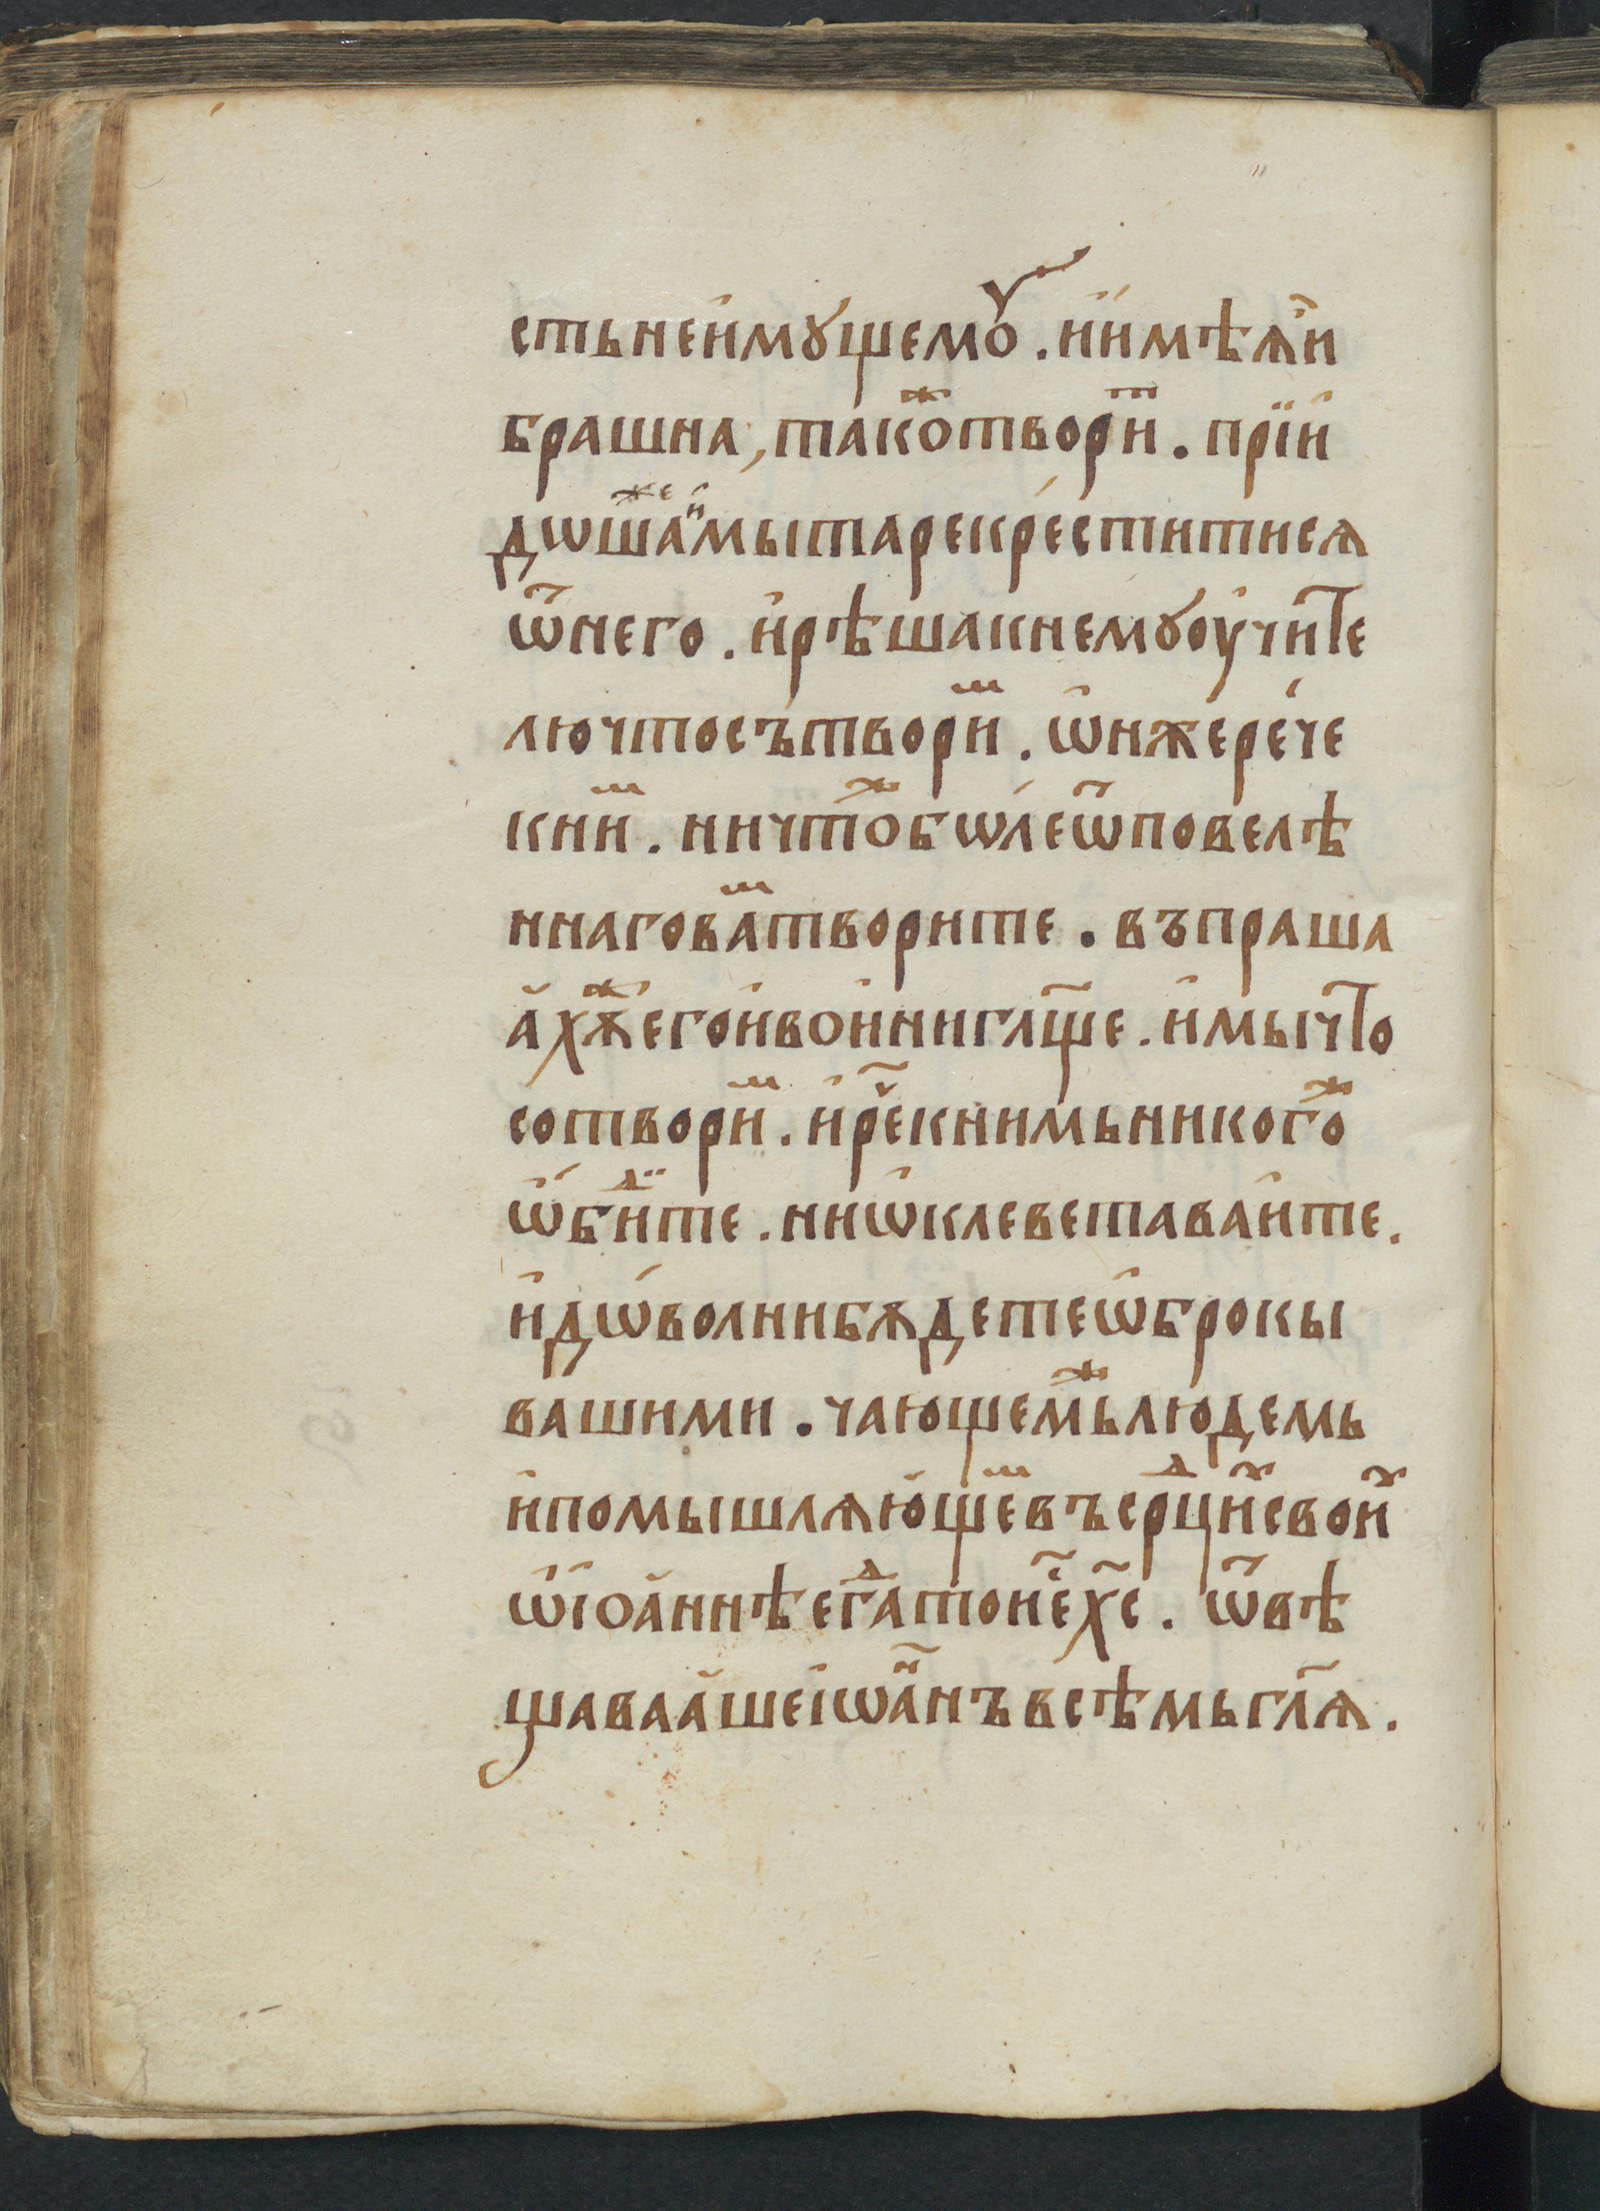 сть неи҆мꙋщемꙋ . и҆и҆мѣѧ҆и
брашна , такоⷤтвориⷮ . прїи҆
дошаⷤⷷиⷨмытаре крⷭ҇еститисѧ
ѿнего . и҆рѣшакнемꙋ оу҆чит҇е
лю что сътвориⷨ . ѡ҆нже рече
книⷨ . ничтоⷤ бѡле ѿповелѣ
ннаго ваⷨ творите . въпраша
а҆хꙋⷤ его и҆вои҆ни гл҃ще . и҆мы чт҇о
сотвориⷨ . и҆ре҃ к нимь никогоⷤ
ѡ҆биⷣте . ниѡ҆клеветаваи҆те .
и҆дѡволни бѧдете ѡ҆брокы
вашими . чающемьⷤ людемь
и҆помышлѧю҆щеⷨ въ срⷣциⷯ свои҆ⷯ
ѡ҆іоа҆ннѣ егⷣа то и҆е҃ х҃с . ѿвѣ
щаваа҆ше і҆ѡа҃нъ всѣмь гл҃ѧ .